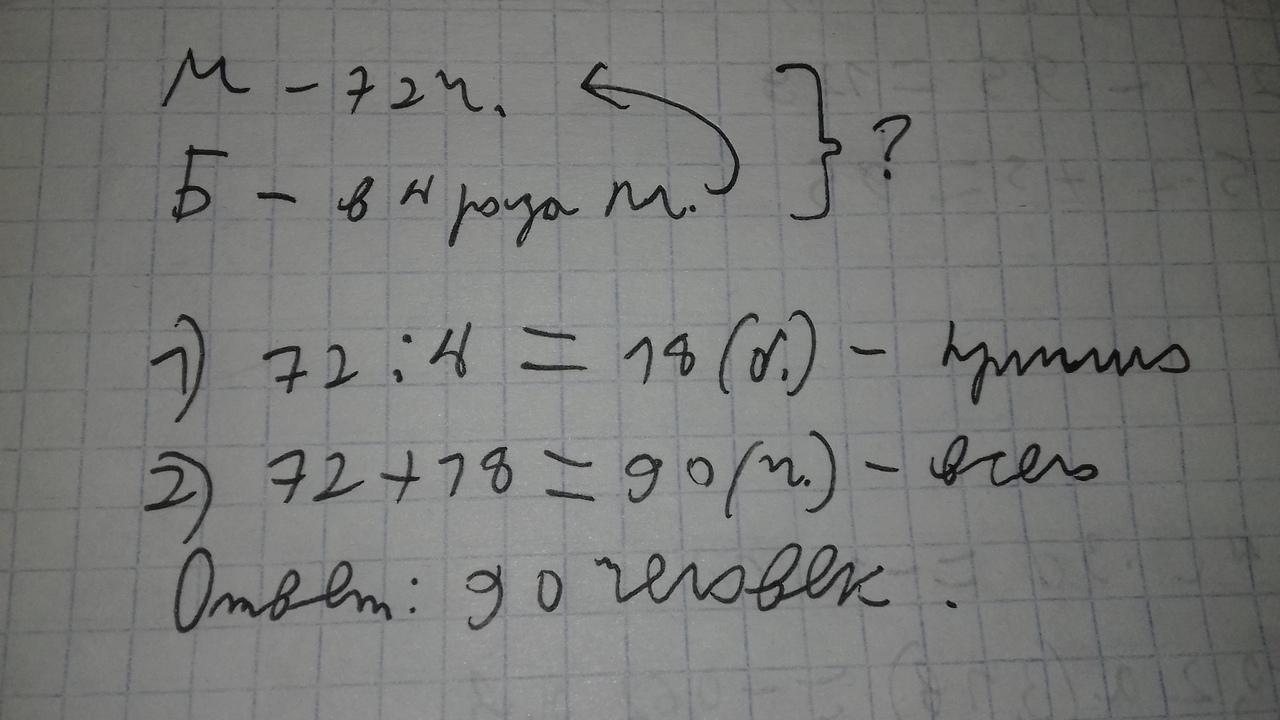 М - 72ч. } ?
Б - в 4 раза м.
1) 72 : 4 = 18 (б.) -
2) 72 + 18 = 90 (ч.) - всего
Ответ: 90 человек.